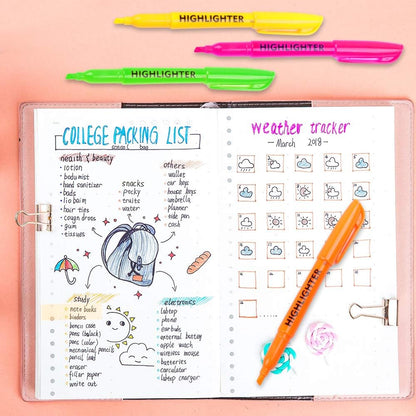 HIGHLIGHTER
HIGHLIGHTER
HIGHLIGHTER
COLLEGE PACKING LIST
school & bag
health & beauty
• lotion
• body mist
• hand sanitizer
• bads
• lip balm
• hair ties
• cough drops
• gum
• tissues
snacks
• pocky
• fruits
• water
others
• wallet
• car keys
• house keys
• umbrella
• planner
• side pen
• cash
study
• note books
• binders
• pencil case
• pens (black)
• pens (color)
• mechanical pencils
• pencil (lead)
• eraser
• filler paper
• write out
electronics
• laptop
• phone
• earbuds
• external battery
• apple watch
• wireless mouse
• batteries
• calculator
• laptop charger
weather tracker
– March 2018 –
HIGHLIGHTER